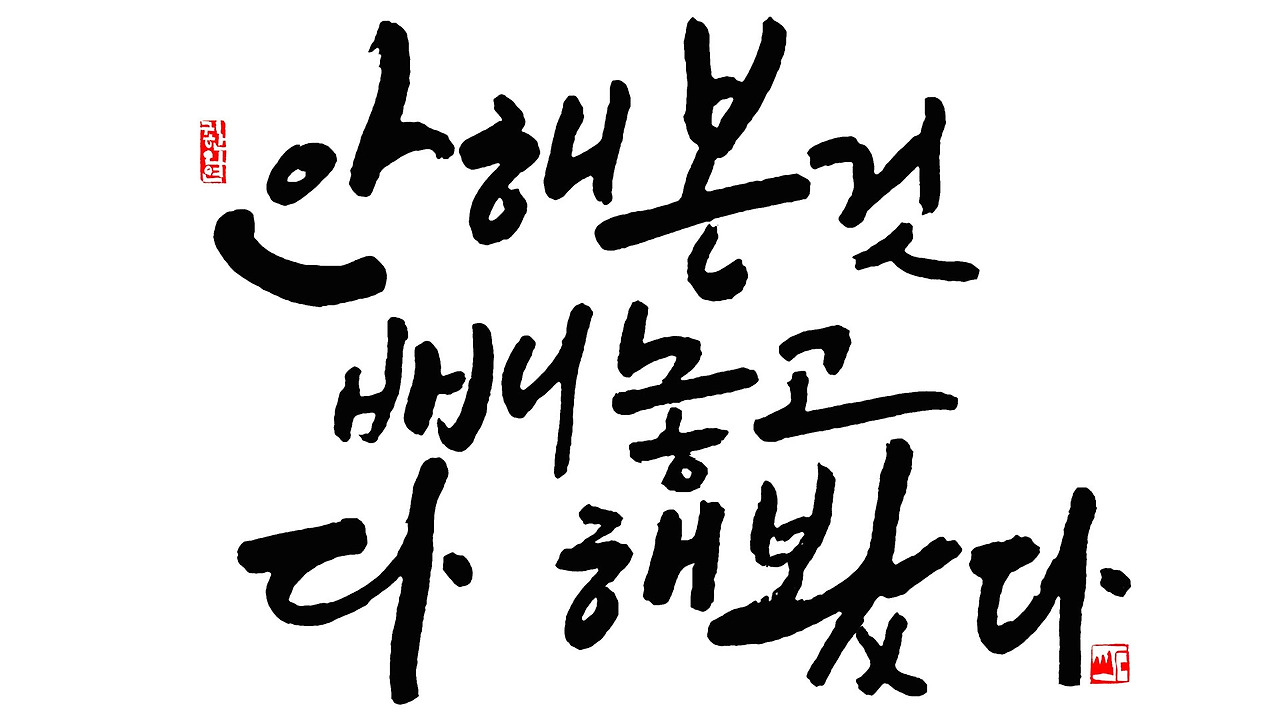 안 해 본 것
빼 놓고
다 해봤다